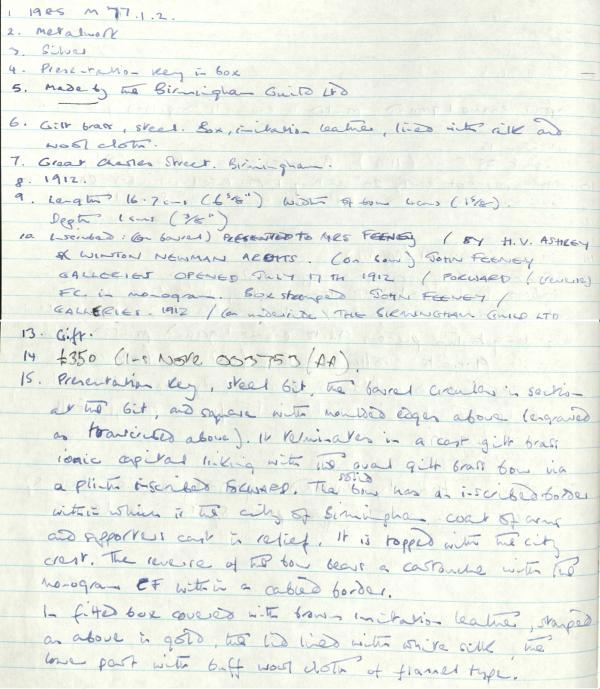 1 1985 M 77.1.2.
2. Metalwork
3. Silver
4. Presentation Key in box
5. Made by the Birmingham Guild Ltd
6. Gilt brass, steel. Box, imitation leather, lined with silk and
wool cloth.
7. Great Charles Street. Birmingham.
8. 1912.
9. Length 16.7 cms (6 5/8") Width of bow 4cms (1 5/8").
Depth 1cms (3/8")
10. Inscribed: (on barrel) PRESENTED TO MRS FEENEY / BY H.V. ASHLEY
& WINTON NEWMAN ARCHTS. (on bow) JOHN FEENEY
GALLERIES OPENED JULY 17TH 1912 / FORWARD /
F.C. in monogram. Box stamped JOHN FEENEY /
GALLERIES. 1912 / (on underside) THE BIRMINGHAM GUILD LTD
13. Gift.
14 £350 (Ins Note 003753/(AA).
15. Presentation key, steel bit, the barrel circular in section
at the bit, and square with moulded edges above (engraved
as transcribed above). It terminates in a cast gilt brass
ionic capital linking with the oval gilt brass bow via
a plinth inscribed FORWARD. The solid bow has an inscribed border
within which is the city of Birmingham coat of arms
and supporters cast in relief. It is topped with the city
crest. The reverse of the bow bears a cartouche with the
monogram EF within a cabled border.
In fitted box covered with brown imitation leather, stamped
as above in gold, the lid lined with white silk, the
lower part with buff wool cloth of flannel type.